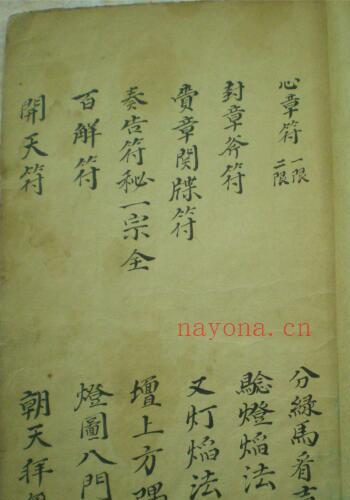 心章符 一限 二限
封章斧符
賫章関牒符
奏告符秘一宗全
百解符
開天符
分緑馬看
騐燈焰法
又灯焰法
壇上方隅
燈圖八門
朝天拜
nayona.cn